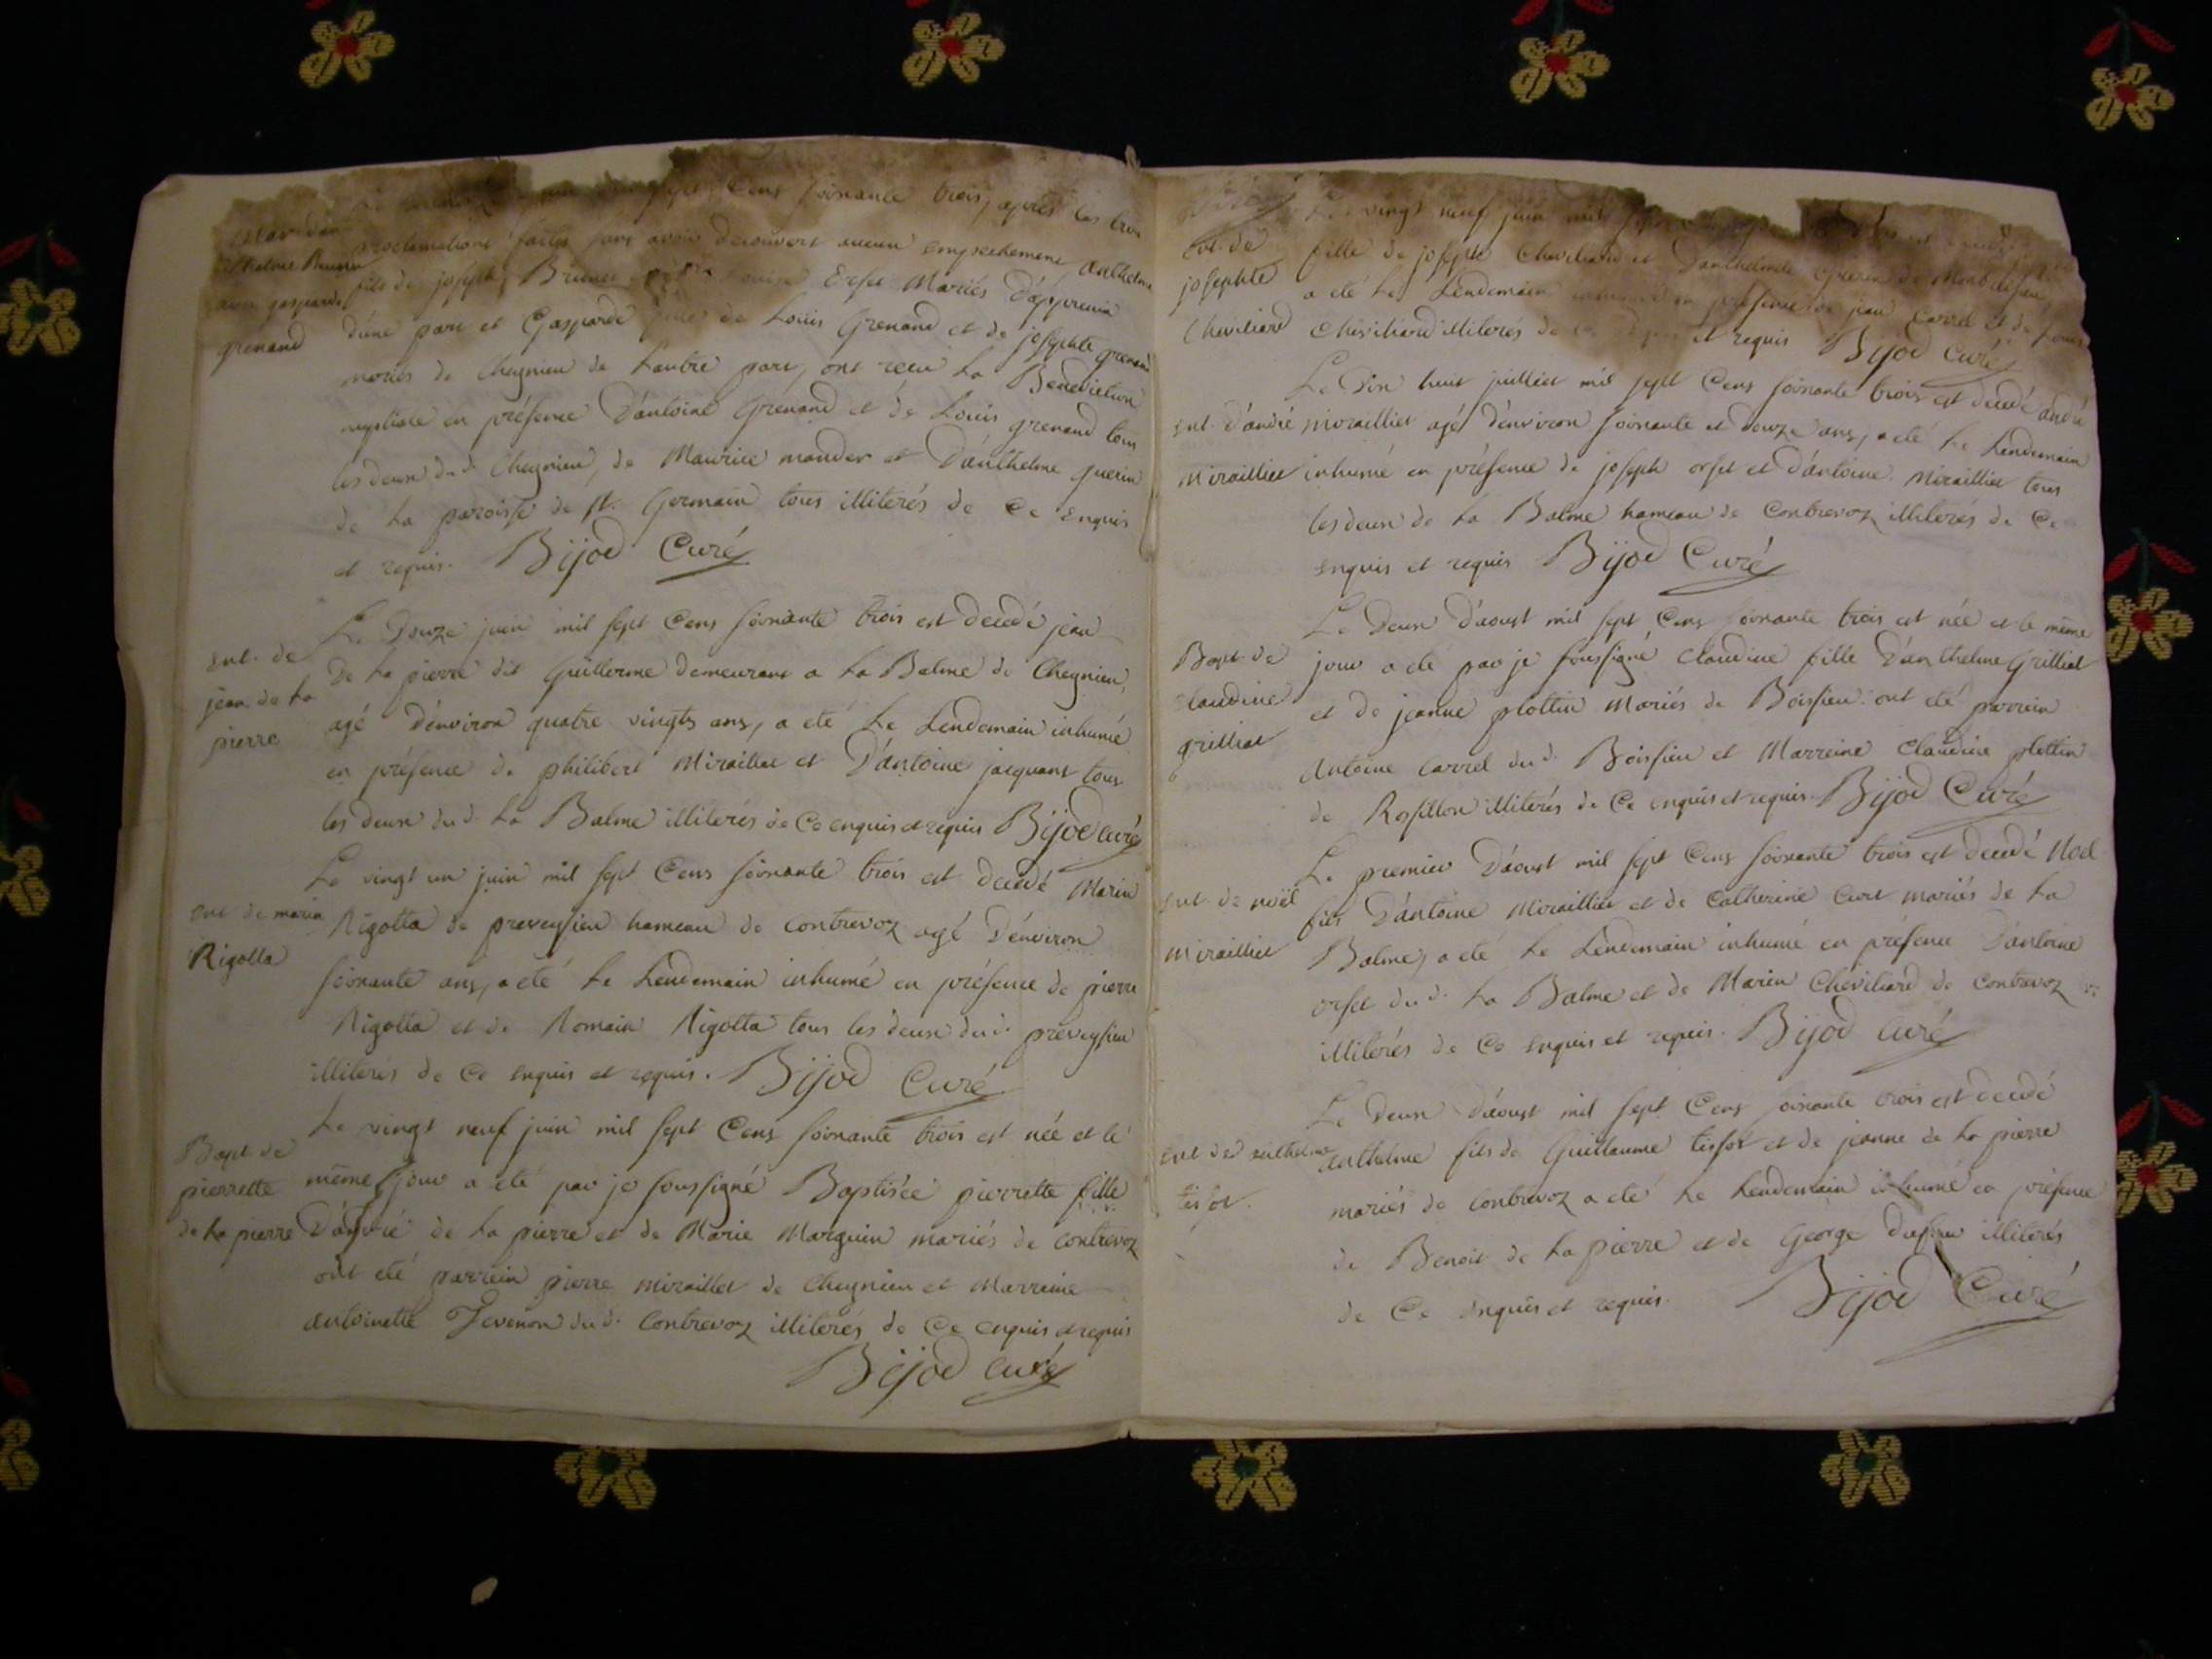 sept Cens soixante trois, après les trois
Mar. d'an
proclamations faites sans avoir decouvert aucun empechement anthelme
thelme Brunet
fils de joseph Brunet et de Louise Orset Mariés d'appremia
avec gasparde
d'une part et Gasparde fille de Louis Grenand et de josephte grenand
grenand
mariés de Chegnieu de Lautre part, ont recu La Benediction
nuptiale en présence D'antoine Grenand et de Louis grenand tous
les deux dud. Chegnieu, de Maurice mander et D'anthelme guerin
de La paroisse de st. Germain tous illiterés de Ce Enquis
et requis. Bijod Curé
Le Douze juin mil sept Cens soixante trois est decedé jean
Ent. de
jean de La
pierre
De La pierre dit Guillerme demeurant a La Balme de Chegnieu,
agé D'environ quatre vingts ans, a eté Le Lendemain inhumé
en présence de philibert Miraillet et D'antoine jacquant tous
les deux dud. La Balme illiterés de Ce enquis et requis Bijod curé
Le vingt un juin mil sept Cens soixante trois est decedé Marin
Ent. de marin
Rigolla
Rigolla de preveysieu hameau de contrevoz agé D'environ
soixante ans, a eté Le Lendemain inhumé en présence de pierre
Rigolla et de Romain Rigolla tous les deux dud. preveysieu
illiterés de Ce enquis et requis. Bijod Curé
Le vingt neuf juin mil sept Cens soixante trois est née et le
Bapt. de
pierrette
de La pierre
même jour a eté par je soussigné Baptisée pierrette fille
D'andré de La pierre et de Marie Marguin mariés de contrevoz
ont eté parrein pierre Miraillet de Chegnieu et Marreine
antoinette Jevenon dud. Contrevoz illiterés de Ce enquis et requis
Bijod curé
Le vingt neuf juin mil sept
Ent. de
josephte
Cheviliard
fille de joseph Cheviliard et D'anthelmete Guerin de Montbreysieu
a eté Le Lendemain inhumée en présence de jean carrel et de Louis
Cheviliard illiterés de Ce enquis et requis Bijod Curé
Le Dix huit juilliet mil sept Cens soixante trois est decedé andré
Ent. d'andré
Miraillet
Miraillet agé D'environ soixante et douze ans, a eté Le Lendemain
inhumé en présence de joseph orset et D'antoine Miraillet tous
les deux de La Balme hameau de Contrevoz illiterés de Ce
enquis et requis Bijod Curé
Le Deux D'aoust mil sept Cens soixante trois est née et le même
Bapt. de
claudine
grilliat
jour a eté par je soussigné claudine fille D'anthelme Grilliat
et de jeanne plottin Mariés de Boissieu: ont eté parrein
antoine Carrel dud. Boissieu et Marreine Claudine plottin
de Rossillon illiterés de Ce enquis et requis. Bijod Curé
Le premier D'aoust mil sept Cens soixante trois est decedé Noel
Ent. de noël
Miraillet
fils D'antoine Miraillet et de Catherine Curt mariés de La
Balme, a eté Le Lendemain inhumé en présence D'antoine
orset dud. La Balme et de Marin Cheviliard de Contrevoz
illiterés de Ce enquis et requis. Bijod Curé
Le Deux D'aoust mil sept Cens soixante trois est decedé
Ent. d'anthelme
tissot.
anthelme fils de Guillaume tissot et de jeanne de La pierre
mariés de Contrevoz a eté Le Lendemain inhumé en présence
de Benoit de La pierre et de George illiterés
de Ce enquis et requis. Bijod Curé